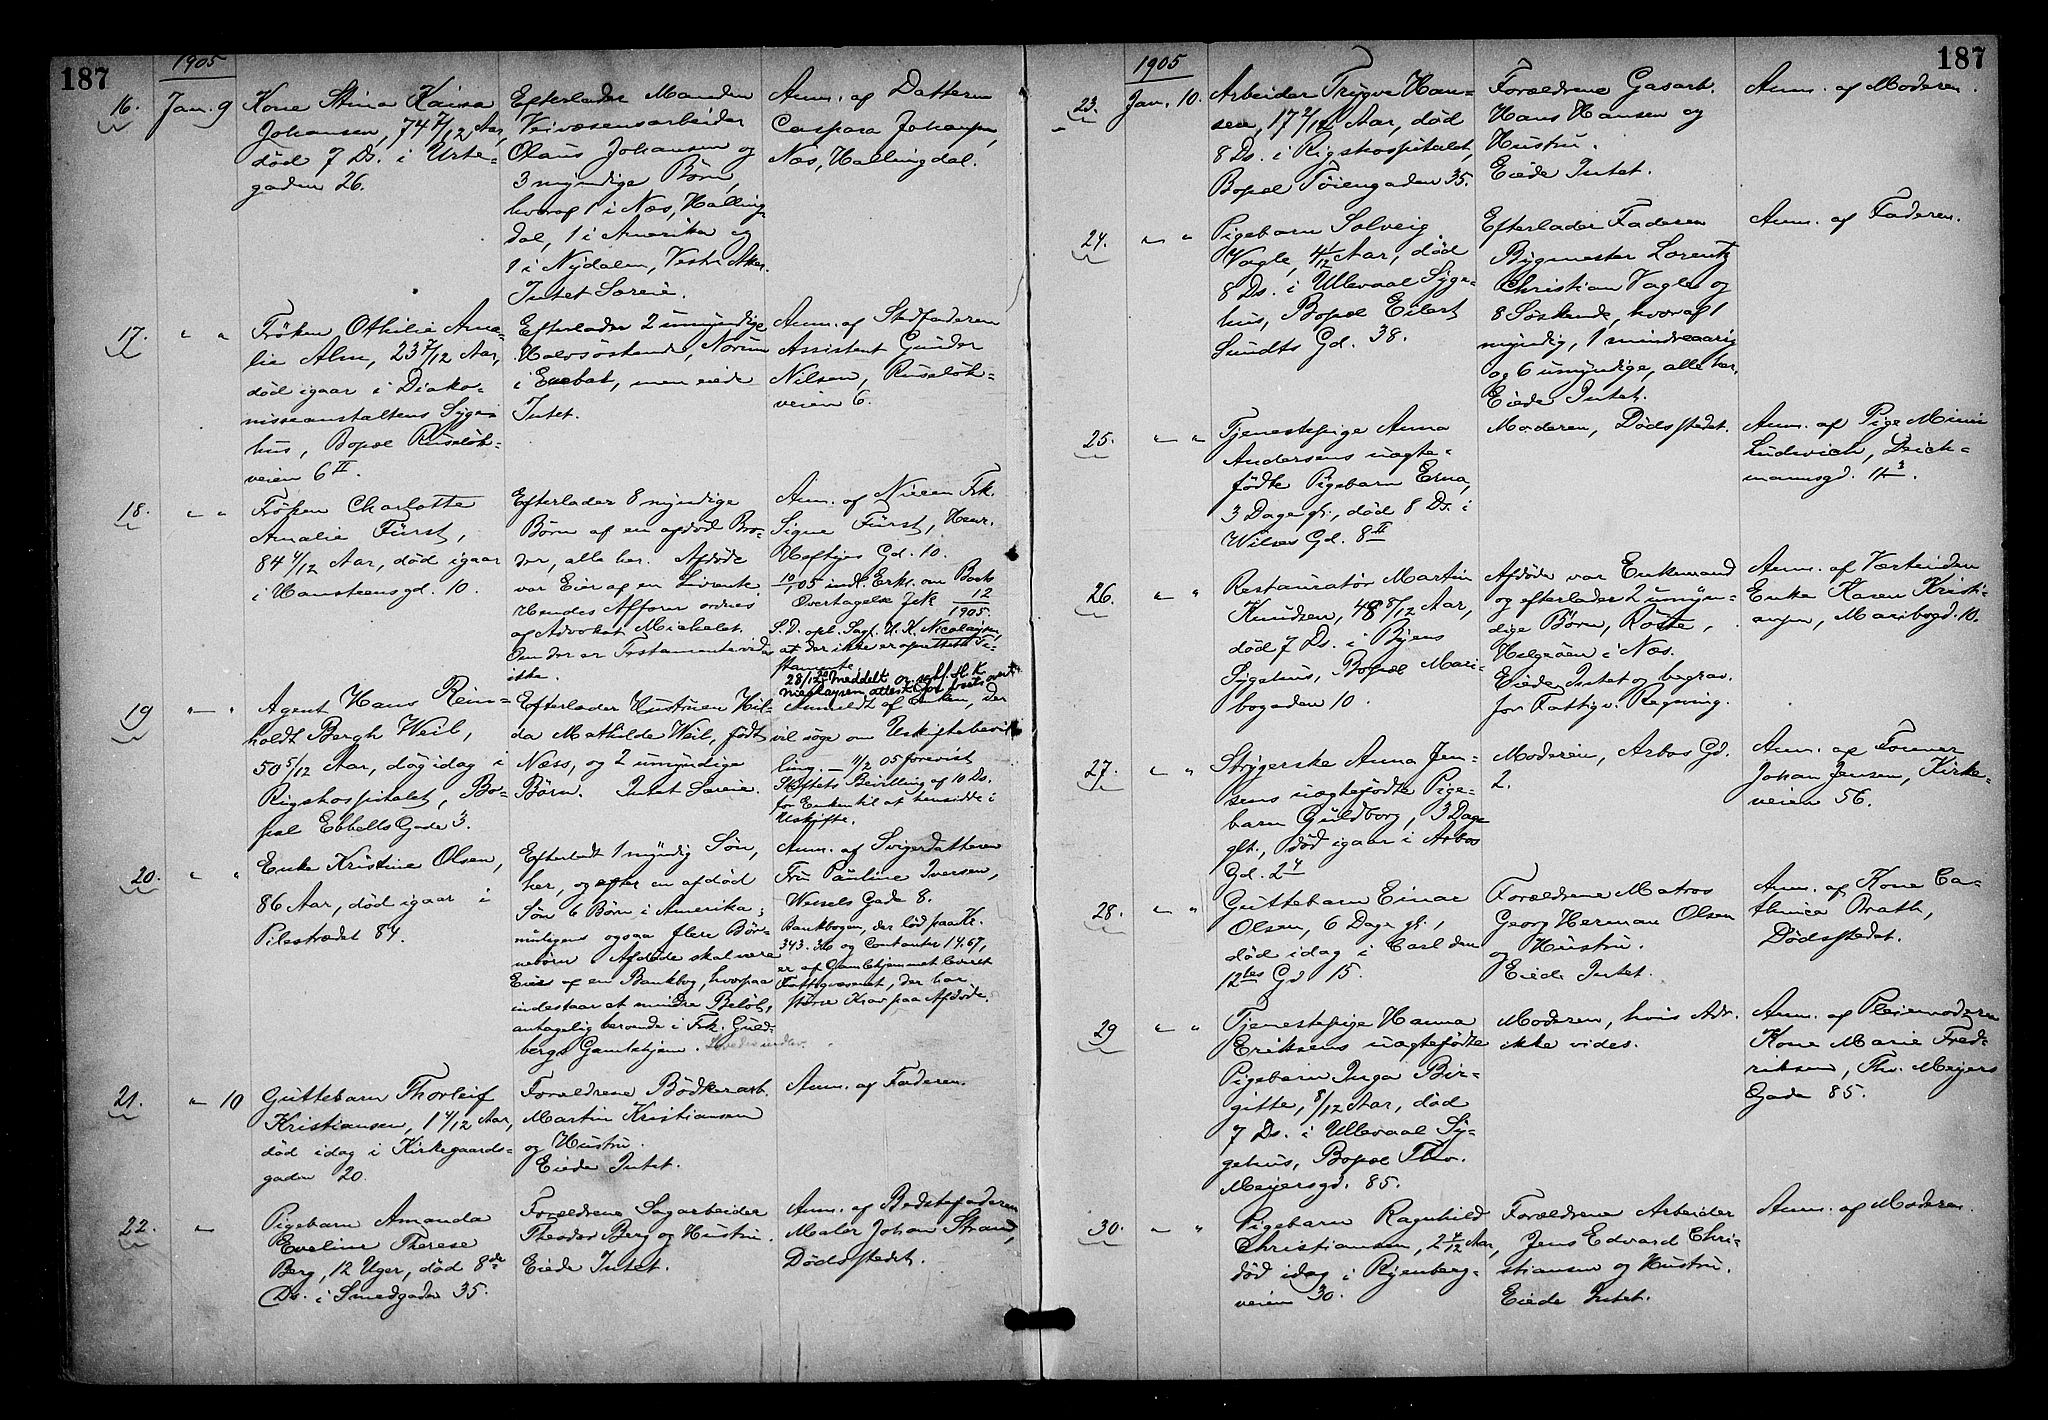 187
1905
16.
Jan. 9
Kone Stina Kaisa
Johansen, 74 7/12 Aar,
død 7 Ds. i Urte-
gaden 26.
Efterlader Manden
Veivæsensarbeider
Olaus Johansen og
3 myndige Børn,
hvoraf 1 i Næs, Halling-
dal, 1 i Amerika og
1 i Nydalen, Vestre Aker.
Intet Særeie.
Anm. af Datteren
Caspara Johansen,
Næs, Hallingdal.
17.
" "
Frøken Othilie Ama-
lie Alm, 23 7/12 Aar,
død igaar i Diako-
nisseanstaltens Syge-
hus, Bopæl Ruseløk-
veien 6 II.
Efterlader 2 umyndige
Halvsøskende, Norum
i Enebak, men eiede
Intet.
Anm. af Stedfaderen
Assistent Gunder
Nilsen, Ruseløk-
veien 6.
18.
" "
Frøken Charlotte
Amalie Fürst,
84 4/12 Aar, død igaar
i Hansteensgd. 10.
Efterlader 8 myndige
Børn af en afdød Bro-
der, alle her. Afdøde
var Eier af en Livrente.
Hendes Affærer ordnes
af Advokat Michelet.
Om der er Testamente vides
ikke.
Anm. af Niecen Frk.
Signe Fürst, Henr.
Heftyes Gd. 10.
10/1 05 indl. Erkl. om Boets
Overtagelse JrN 12
1905.
S. D. opl. Sagf. H. K. Nicolaysen,
at der ikke er oprettet Te-
stamente.
19
" "
Agent Hans Rein-
holdt Bergh Weil,
50 5/12 Aar, dø̸g idag i
Rigshospitalet, Bo-
pæl Ebbells Gade 3.
Efterlader Hustruen Hil-
da Mathilde Weil, født
Næss, og 2 umyndige
Børn. Intet Særeie.
Anmeldt af Enken, der
vil søge om Uskiftebevil-
ling. — 11/2 05 forevist
Skiftets Bevilling af 10 Ds.
for Enken til at hensidde i
Uskifte.
20.
" "
Enke Kristine Olsen,
86 Aar, død igaar i
Pilestrædet 84.
Efterladt 1 myndig Søn,
her, og efter en afdød
Søn 6 Børn i Amerika;
muligens ogsaa flere Bør-
nebørn. Afdøde skal være
Eier af en Bankbog, hvorpaa
indestaar et mindre Beløb,
antagelig beroende i Frk. Guld-
bergs Gamlehjem.
Anm. af Svigerdatteren
Fru Pauline Iversen,
Wessels Gade 8.
Bankbogen, der lød paa Kr.
343.36 og Contanter 14.67,
er af Gamlehjemmet leveret
Fattigvæsenet, der har
større Krav paa Afdøde.
21.
" 10
Guttebarn Thorleif
Kristiansen, 1 4/12 Aar,
død idag i Kirkegaards-
gaden 20.
Forældrene Bødkerarb.
Martin Kristiansen
og Hustru.
Eiede Intet.
Anm. af Faderen.
22.
"
Pigebarn Amanda
Eveline Therese
Berg, 12 Uger, død 8de
Ds. i Smedgaden 35.
Forældrene Sagarbeider
Theodor Berg og Hustru.
Eiede Intet.
Anm. af Bedstefaderen
Maler Johan Strand,
Dødsstedet.
187
1905
23.
Jan. 10.
Arbeider Trygve Han-
sen, 17 2/12 Aar, død
8 Ds. i Rigshospitalet,
Bopæl Tøiengaden 35.
Forældrene Gasarb.
Hans Hansen og
Hustru.
Eiede Intet.
Anm. af Moderen.
24.
" "
Pigebarn Solveig
Vagle, 4/12 Aar, død
8 Ds. i Ullevaal Syge-
hus, Bopæl Eilert
Sundts Gd. 38.
Efterlader Faderen
Bygmester Lorentz
Christian Vagle og
8 Søskende, hvoraf 1
myndig, 1 mindreaarig
og 6 umyndige, alle her.
Eiede Intet.
Anm. af Faderen.
25.
" "
Tjenestepige Anna
Andersens uægte-
fødte Pigebarn Erna,
3 Dage gl., død 8 Ds. i
Wilses Gd. 8 II
Moderen, Dødsstedet.
Anm. af Pige Mimi
Ludvich, Deich-
mannsgd. 11 3.
26.
" "
Restauratør Martin
Knudsen, 48 8/12 Aar,
død 7 Ds. i Byens
Sygehus, Bopæl Mari-
bogaden 10.
Afdøde var Enkemand
og efterlader 2 umyn-
dige Børn,
Helgøen i Næs.
Eiede Intet og begrav.
for Fattigv. Regning.
Anm. af Værtinden
Enke Karen Kristi-
ansen, Maribogd. 10.
27.
" "
Strygerske Anna Jen-
sens uægtefødte Pige-
barn Guldborg, 3 Dage
glt., død igaar i Arbos
Gd. 2 4
Moderen, Arbos Gd.
2.
Anm. af Former
Johan Jensen, Kirke-
veien 56.
28.
" "
Guttebarn Einar
Olsen, 6 Dage gl.,
død idag i Carl den
12tes Gd 15.
Forældrene Matros
Georg Herman Olsen
og Hustru.
Eiede Intet.
Anm. af Kone Ca-
thinca Brath,
Dødsstedet.
29
" "
Tjenestepige Hanna
Eriksens uægtefødte
Pigebarn Inga Bir-
gitte, 8/12 Aar, død
7 Ds. i Ullevaal Sy-
gehus, Bopæl Thv.
Meyersgd. 85.
Moderen, hvis Adr.
ikke vides.
Anm. af Pleiemoderen
Kone Marie Fred-
riksen, Thv. Meyers
Gade 85.
30.
" "
Pigebarn Ragnhild
Christiansen, 2 4/12 Aar,
død idag i Ryenberg-
veien 30.
Forældrene Arbeider
Jens Edvard Chri-
stiansen og Hustru.
Eiede Intet.
Anm. af Moderen.